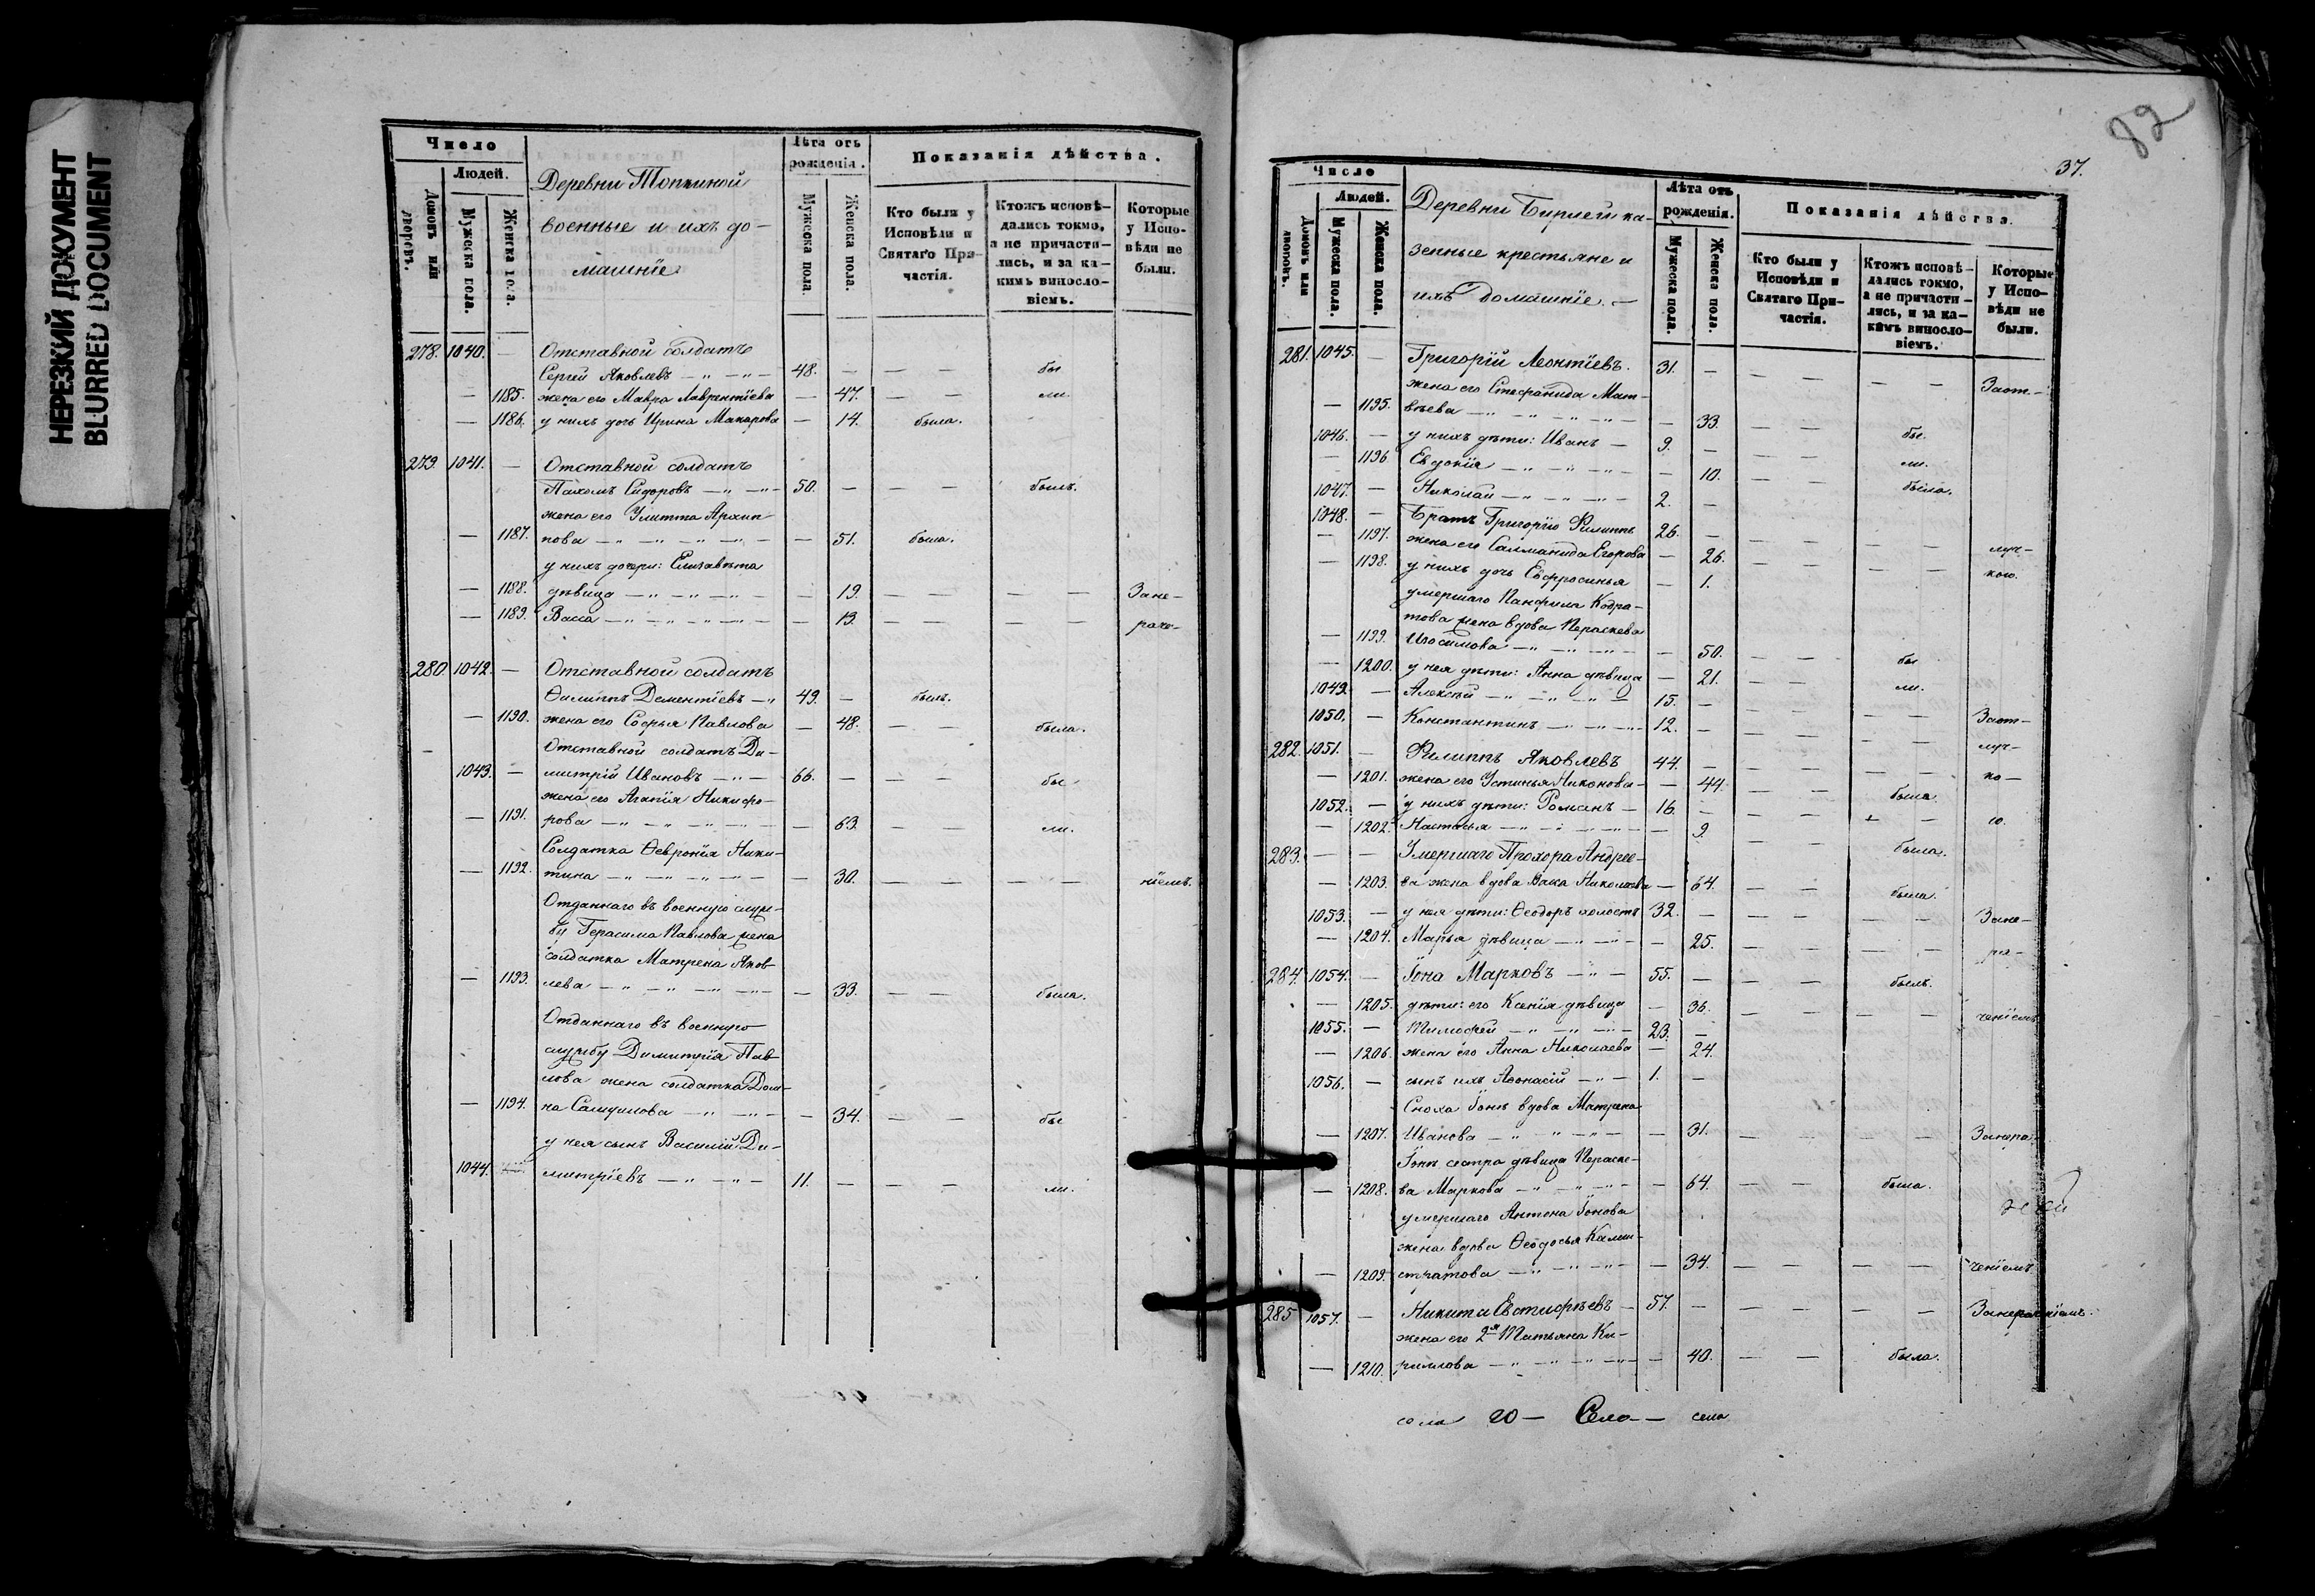 НЕРЕЗКИЙ ДОКУМЕНТ
BLURRED DOCUMENT
Число
Людей.
Домовъ или дворовъ.
Мужеска пола.
Женска пола.
Деревни Топкиной
военные и ихъ до-
машніе
Лѣта отъ рожденія.
Мужеска пола.
Женска пола.
Показанія дѣйства.
Кто были у Исповѣди и Святаго Причастія.
Ктожъ исповѣдались токмо, а не причастились, и за какимъ винословіемъ.
Которые у Исповѣди не были.
278. 1040. — Отставной солдатъ
Сергей Яковлевъ 48. — — — бы
— 1185. жена его Мавра Лаврентіева — 47. — — ли.
— 1186. у нихъ дочь Ирина Макарова — 14. была.
279. 1041. — Отставной солдатъ
Пахомъ Сидоровъ 50. — — — былъ.
жена его Улитта Архип
— 1187. пова — 51. была.
у нихъ дочери: Елизавета
— 1188. дѣвица — 19. — — — — Зане-
— 1189. Васса — 13. — — — — раче-
280. 1042. — Отставной солдатъ
Филиппъ Дементіевъ 49. — былъ.
— 1190. жена его Софья Павлова — 48. — — была.
Отставной солдатъ Ди-
1043. — митрій Ивановъ 66. — — — бы
жена его Агапія Никифо-
— 1191. рова — 63. — — ли.
Солдатка Ѳевронія Ники-
— 1192. тина — 30. — — — — ніемъ.
Отданнаго въ военную служ-
бу Герасима Павлова жена
солдатка Матрена Яков-
— 1193. лева — 33. — — была.
Отданнаго въ военную
службу Димитрія Пав-
лова жена солдатка Дом-
— 1194. на Самуилова — 34. — — бы
у нея сынъ Василій Ди-
1044. митріевъ 11. — — — ли.
82
37.
Число
Людей.
Домовъ или дворовъ.
Мужеска пола.
Женска пола.
Деревни Бирлей ка-
зенные крестьяне и
ихъ домашніе.
Лѣта отъ рожденія.
Мужеска пола.
Женска пола.
Показанія дѣйства.
Кто были у Исповѣди и Святаго Причастія.
Ктожъ исповѣдались токмо, а не причастились, и за какимъ винословіемъ.
Которые у Исповѣди не были.
281. 1045. — Григорій Леонтіевъ. 31. — — — — — Заот-
жена его Стефанида Мат-
— 1195. вѣева — 33. — — бы
1046. — у нихъ дѣти: Иванъ — 9. — — — ли.
— 1196 Евдокія — 10. — — была.
1047. — Николай 2. —
1048. — Братъ Григорію Филиппъ 26. — — — — — луч-
— 1197. жена его Саламанида Егорова — 26. — — — — кою.
— 1198. у нихъ дочь Евфросинья — 1.
умершаго Панфила Кодра-
това жена вдова Пераскева
— 1199. Изосимова — 50. — — бы
— 1200. у нея дѣти: Анна дѣвица — 21. — — ли.
1049. — Алексѣй 15. — — — — — Заот-
1050. — Константинъ 12. — — — — — луч-
282. 1051. — Филиппъ Яковлевъ 44. — — — — — ко-
— 1201. жена его Устинья Никонова — 44. — — была.
1052. — у нихъ дѣти: Романъ — 16. — — — — — ю.
— 1202. Настасья — 9. — — была.
283. — — Умершаго Прохора Андрее-
— 1203. ва жена вдова Васа Николаева — 64. — — была.
1053. — у нея дѣти: Ѳеодоръ холостъ 32. — — — — — Зане-
— 1204. Марья дѣвица — 25. — — — — ра-
284. 1054. — Іона Марковъ 55. — — — былъ.
— 1205. дѣти: его Ксенія дѣвица — 36. — — — — ченіемъ
1055. — Тимофей 23. —
— 1206. жена его Анна Николаева — 24.
1056. — сынъ ихъ Аѳонасій 1. —
Сноха Іонѣ вдова Матрена
— 1207. Иванова — 31. — — — — Занера-
Іонѣ сестра дѣвица Пераске-
— 1208. ва Маркова — 64. — — была.
умершаго Антона Іонова
жена вдова Ѳеодосья Калли-
— 1209. стратова — 34. — — — — ченіемъ
285 1057. — Никита Евстифѣевъ — 57. — — — — — Занераченіемъ.
жена его 2я Татьяна Ки-
— 1210. риллова — 40. — — была.
села